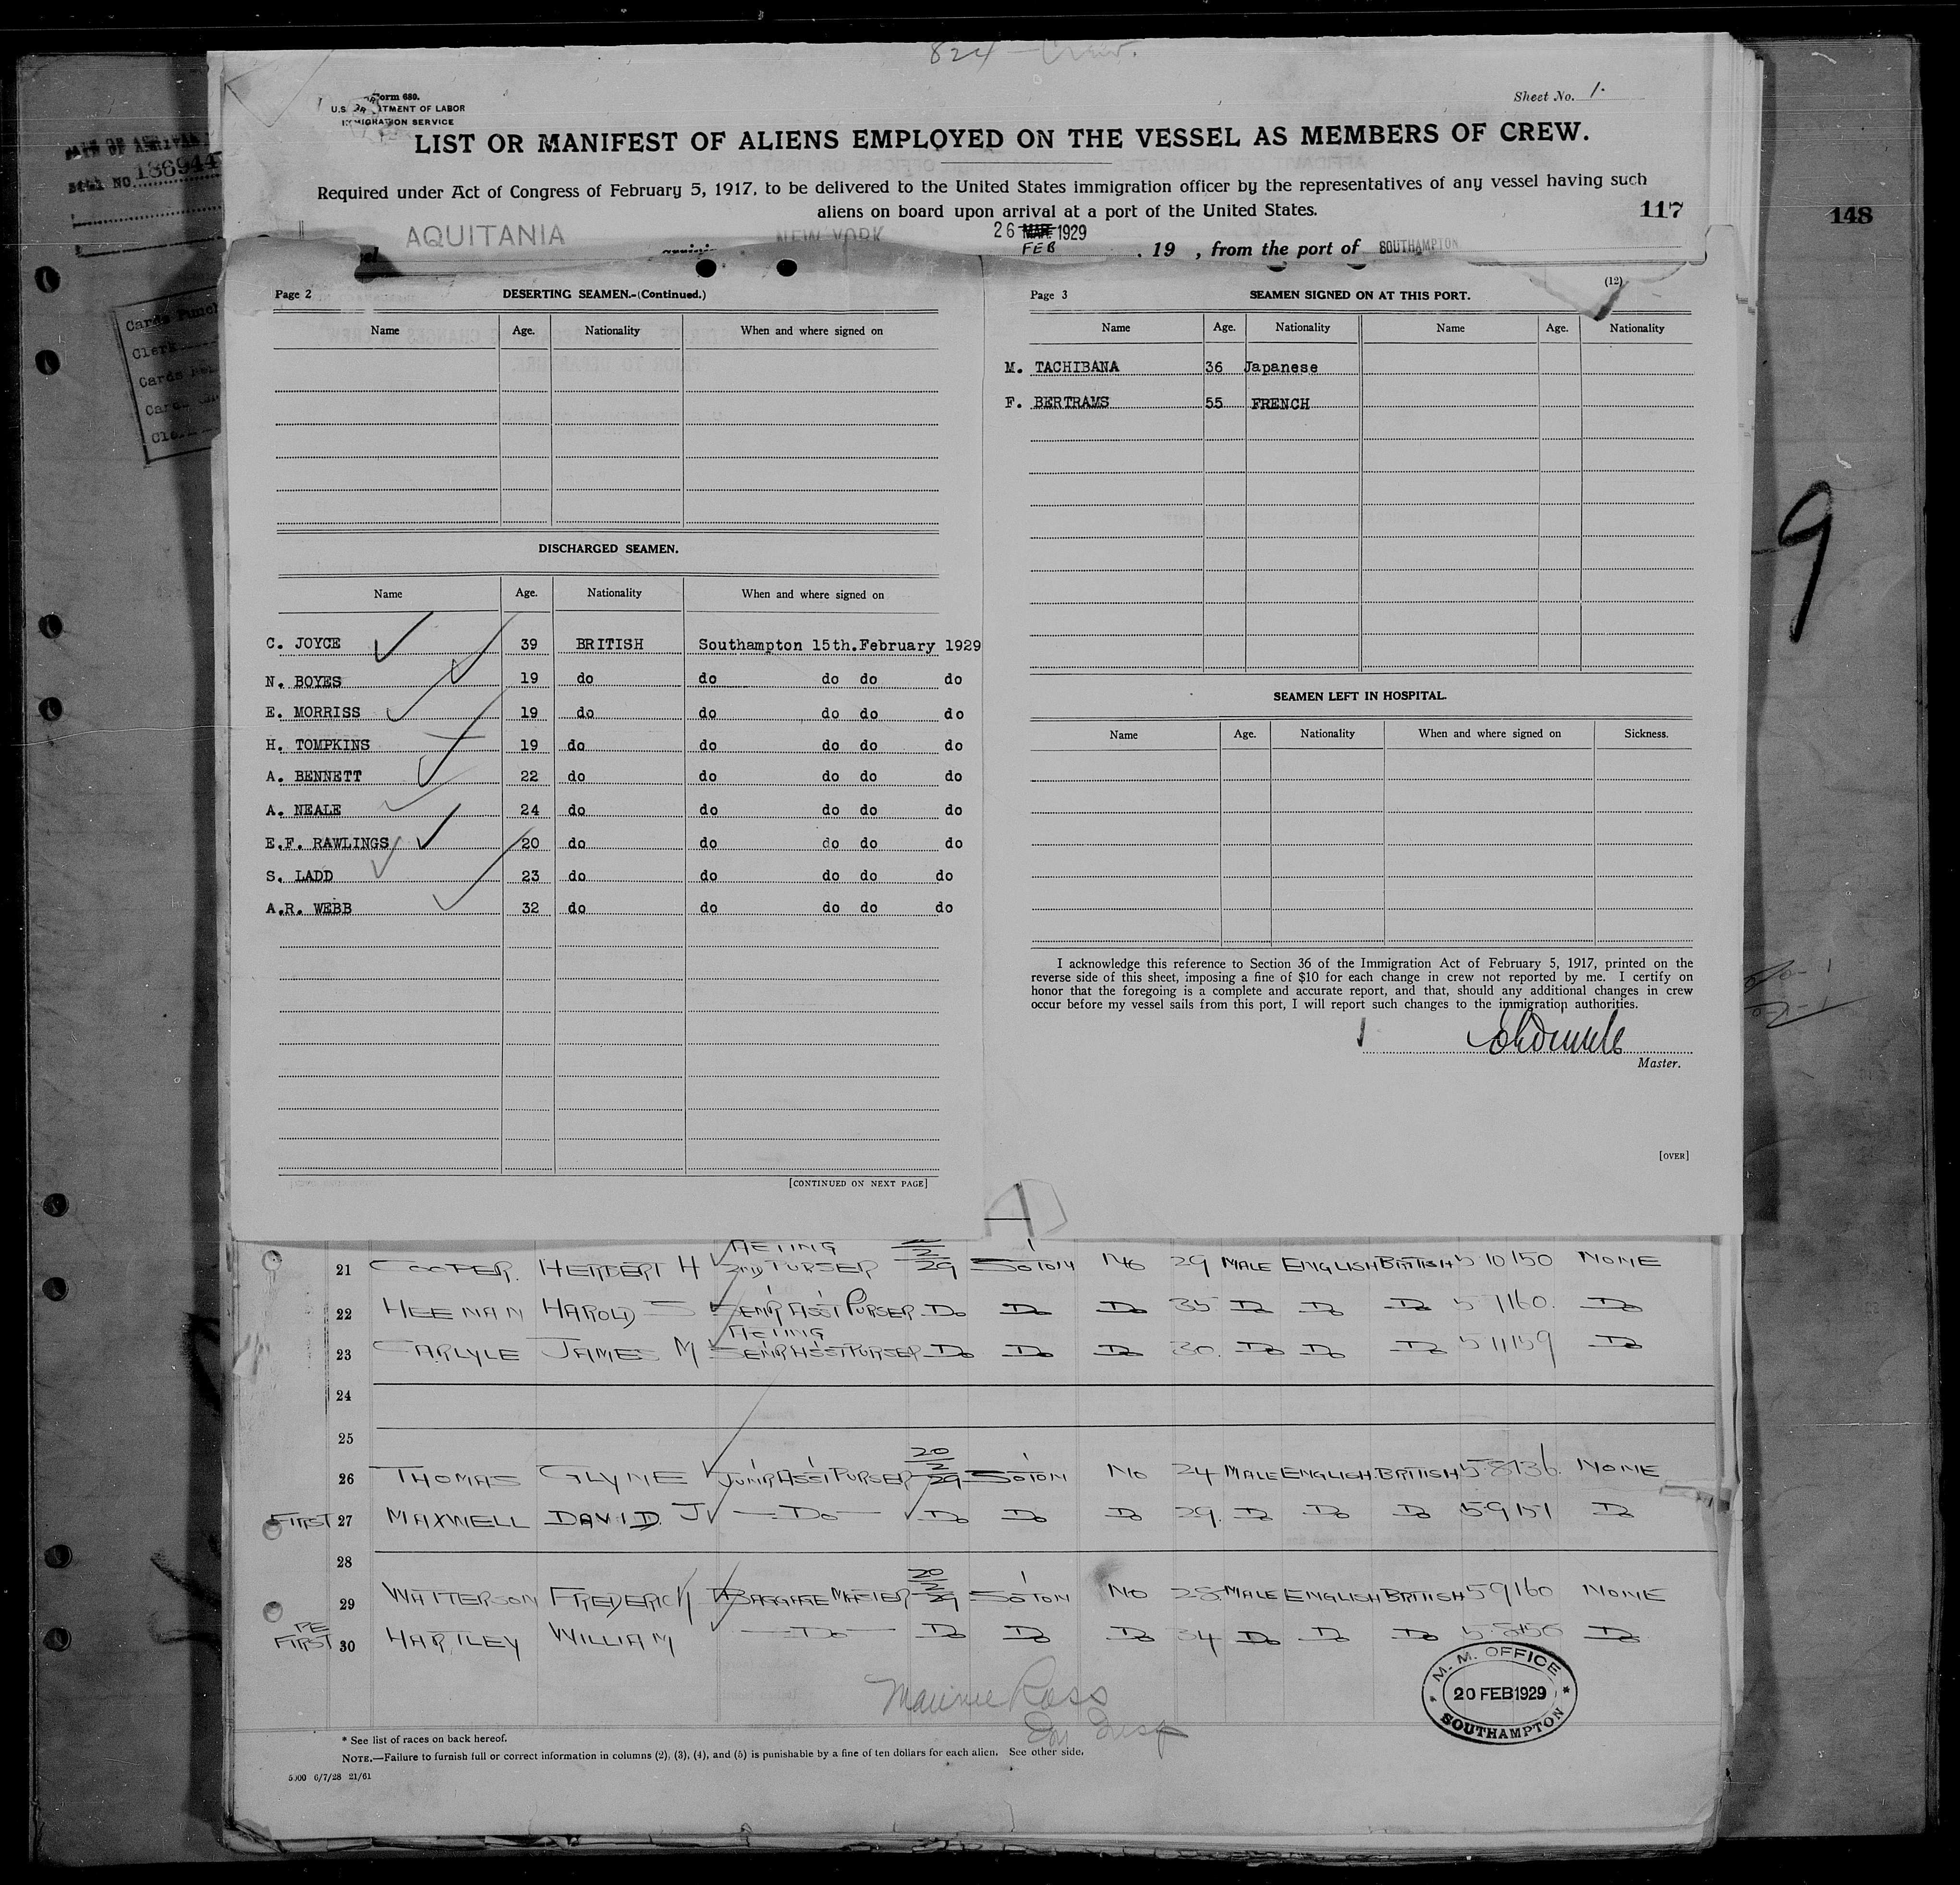 824 - Crew.
Form 680.
U.S. DEPARTMENT OF LABOR
IMMIGRATION SERVICE
Sheet No. 1.
LIST OR MANIFEST OF ALIENS EMPLOYED ON THE VESSEL AS MEMBERS OF CREW.
Required under Act of Congress of February 5, 1917, to be delivered to the United States immigration officer by the representatives of any vessel having such
aliens on board upon arrival at a port of the United States.
117
148
186944
AQUITANIA NEW YORK 26 MAR 1929 FEB , 19 , from the port of SOUTHAMPTON
(12)
Page 2 DESERTING SEAMEN.-(Continued.)
Name Age. Nationality When and where signed on
DISCHARGED SEAMEN.
Name Age. Nationality When and where signed on
C. JOYCE 39 BRITISH Southampton 15th.February 1929
N. BOYES 19 do do do do do
E. MORRISS 19 do do do do do
H. TOMPKINS 19 do do do do do
A. BENNETT 22 do do do do do
A. NEALE 24 do do do do do
E.F. RAWLINGS 20 do do do do do
S. LADD 23 do do do do do
A.R. WEBB 32 do do do do do
[CONTINUED ON NEXT PAGE]
Page 3 SEAMEN SIGNED ON AT THIS PORT.
Name Age. Nationality Name Age. Nationality
M. TACHIBANA 36 Japanese
F. BERTRAMS 55 FRENCH
SEAMEN LEFT IN HOSPITAL.
Name Age. Nationality When and where signed on Sickness.
I acknowledge this reference to Section 36 of the Immigration Act of February 5, 1917, printed on the
reverse side of this sheet, imposing a fine of $10 for each change in crew not reported by me. I certify on
honor that the foregoing is a complete and accurate report, and that, should any additional changes in crew
occur before my vessel sails from this port, I will report such changes to the immigration authorities.
Master.
[OVER]
9
ACTING
21 COOPER. HERBERT H 2ND PURSER 29 SOTON NO 29 MALE ENGLISH BRITISH 5 10 150 NONE
22 HEENAN HAROLD S SENR ASST PURSER Do Do Do 35 Do Do Do 5 7 160. Do
ACTING
23 CARLYLE JAMES M SENR ASST PURSER Do Do Do 30. Do Do Do 5 11 159 Do
24
25
26 THOMAS GLYNE JUNR ASST PURSER 20/2/29 SOTON NO 24 MALE ENGLISH BRITISH 5 8 136. NONE
FIRST 27 MAXWELL DAVID. J -Do- Do Do Do 29. Do Do Do 5 9 151 Do
28
29 WATTERSON FREDERICK BAGGAGE MASTER 20/2/29 SOTON NO 28 MALE ENGLISH BRITISH 5 9 160 NONE
RE FIRST 30 HARTLEY WILLIAM -Do- Do Do Do 34 Do Do Do Do
M. M. OFFICE
20 FEB 1929
SOUTHAMPTON
* See list of races on back hereof.
NOTE.—Failure to furnish full or correct information in columns (2), (3), (4), and (5) is punishable by a fine of ten dollars for each alien. See other side.
5000 6/7/28 21/61